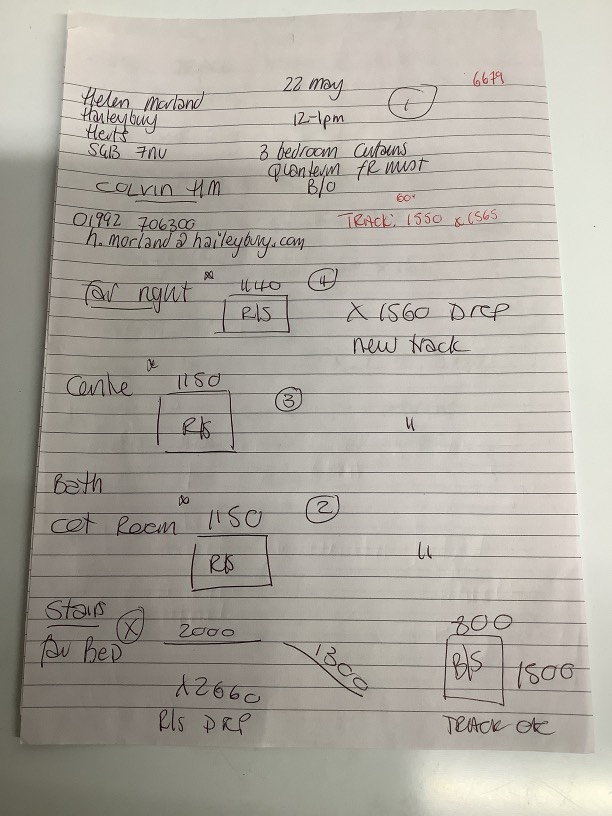 22 may
6679
Helen Morland
Haileybury
12-1pm
1
Herts
SG13 7NU
3 bedroom Curtains
Quantum FR MUST
COLVIN HM
B/O
01992 706300
TRACK: 1550 x 1565
h.morland@haileybury.com
far right
1140
4
R/S
X 1560 Drop
new track
Centre
1150
3
R/S
"
Bath
Cot Room
1150
2
R/S
"
Stairs
X
far BED
2000
1300
800
B/S
1800
X2660
R/S DRP
TRACK OK